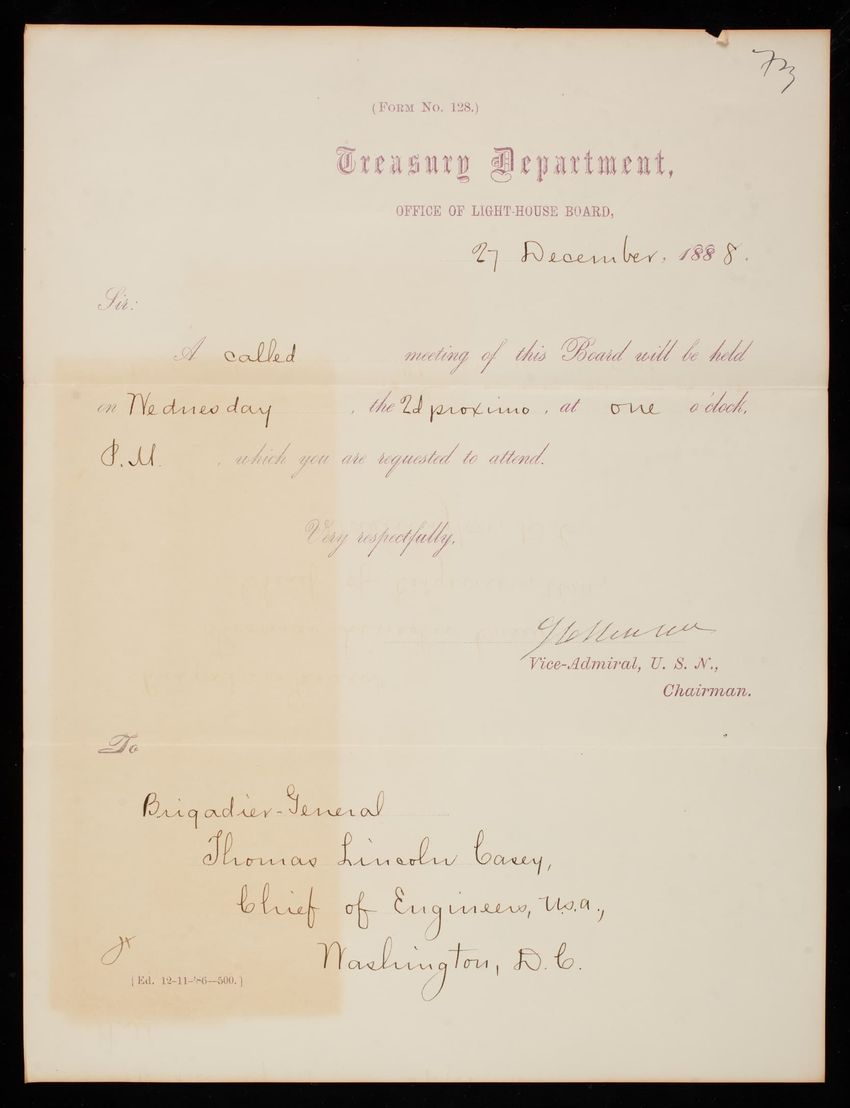 (FORM NO. 128.)
Treasury Department,
OFFICE OF LIGHT-HOUSE BOARD,
27 December, 1888.
Sir:
A called meeting of this Board will be held
on Wednesday, the 2d proximo, at one o'clock,
P.M., which you are requested to attend.
Very respectfully,
Vice-Admiral, U. S. N.,
Chairman.
To
Brigadier-General
Thomas Lincoln Casey,
Chief of Engineers, U.S.A.,
Washington, D.C.
(Ed. 12-11-'86—500.)